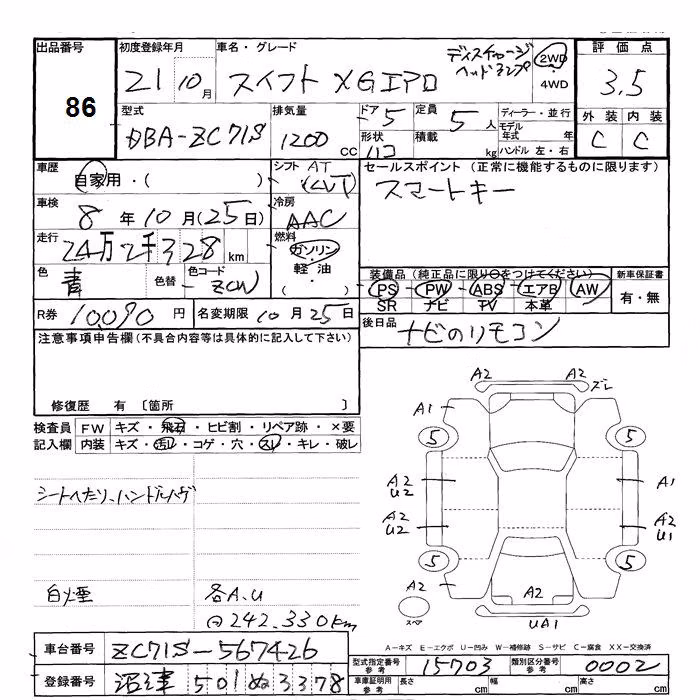 出品番号 初度登録年月 車名・グレード 評価点
86
21 10月 スイフト XGエアロ ディスチャージ ヘッドランプ 2WD 4WD 3.5
型式 排気量 ドア 5 定員 5人 ディーラー・並行 外装 内装
DBA-ZC71S 1200 CC 形状 ハコ 積載 kg モデル年式 年 ハンドル 左・右 C C
車歴 シフト AT セールスポイント (正常に機能するものに限ります)
自家用・( ) (CVT) スマートキー
車検 8年10月(25日) 冷房 AAC
走行 24万2千328km 燃料 ガソリン・軽油・( )
色 青 色替 色コード ZCW
装備品 (純正品に限り○をつけてください) 新車保証書
PS PW ABS エアB AW 有・無
SR ナビ TV 本革
R券 10,090円 名変期限 10月25日 後日品 ナビのリモコン
注意事項申告欄(不具合内容等は具体的に記入して下さい)
修復歴 有〔箇所 〕
検査員 FW キズ・飛石・ヒビ割・リペア跡・×要
記入欄 内装 キズ・汚レ・コゲ・穴・スレ・キレ・破レ
シートヘたり、ハンドルハゲ
白煙 各A.U
242,330km
A2 A2 ズレ
A1
5 5
A2 U2 A1
A2 U2 A2 U1
5 5
A2 A2
スペア UA1
A-キズ E-エクボ U-凹み W-補修跡 S-サビ C-腐食 XX-交換済
車台番号 ZC71S-567426 型式指定番号 参考 15703 類別区分番号 参考 0002
登録番号 沼津 501 ぬ 3378 車庫証明用 参考 長さ cm 幅 cm 高さ cm